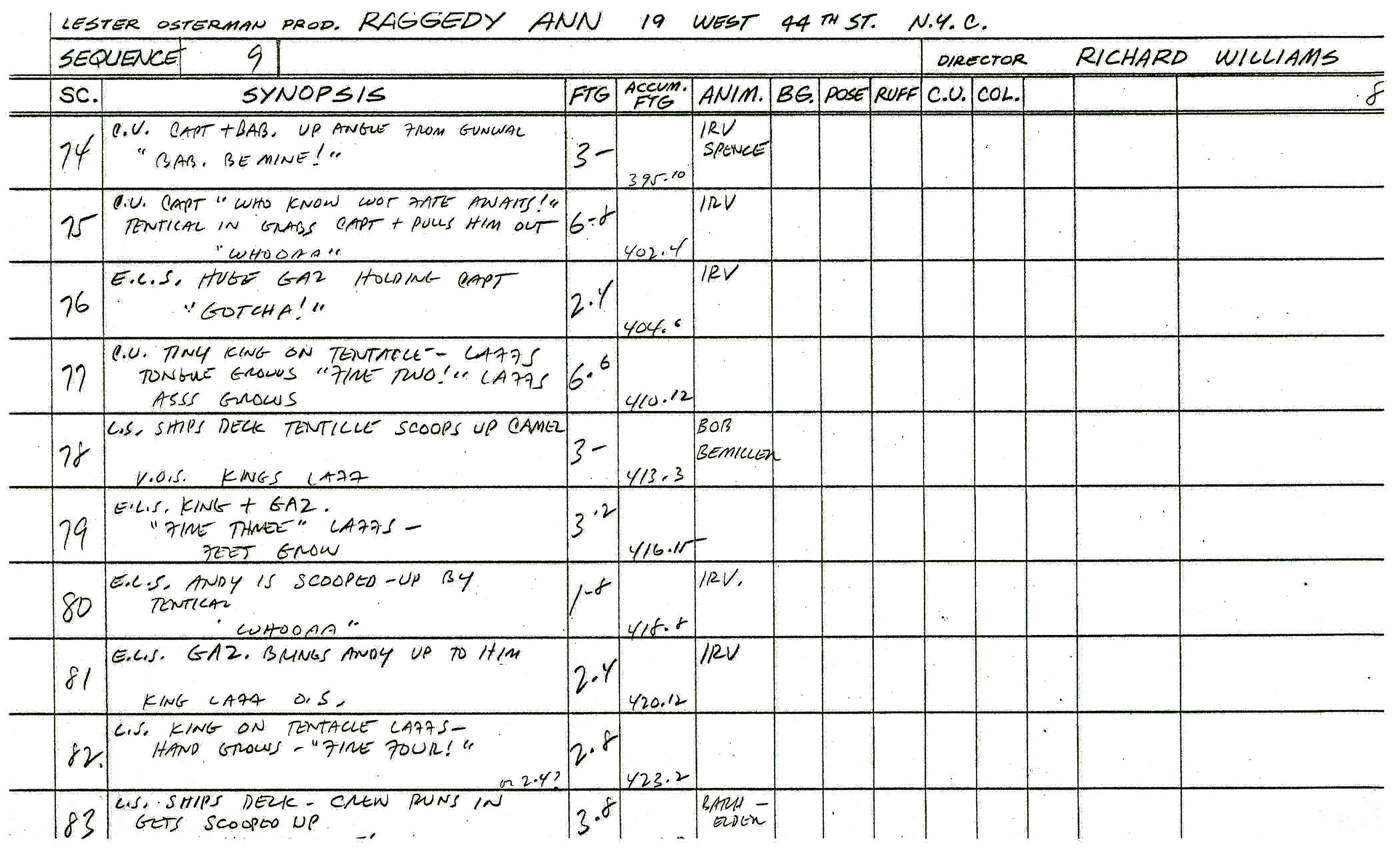 LESTER OSTERMAN PROD. RAGGEDY ANN 19 WEST 44TH ST. N.Y.C.
SEQUENCE 9 DIRECTOR RICHARD WILLIAMS
SC. SYNOPSIS FTG ACCUM. FTG ANIM. BG. POSE RUFF C.U. COL. 8
74 C.U. CAPT + BAB. UP ANGLE FROM GUNWAL 3- 395.10 IRV SPENCE
"BAB. BE MINE!"
75 C.U. CAPT "WHO KNOW WOT FATE AWAITS!" 6-8 402.4 IRV
TENTICAL IN GRABS CAPT + PULLS HIM OUT
"WHOOAA"
76 E.L.S. HUGE GAZ HOLDING CAPT 2.4 404.6 IRV
"GOTCHA!"
77 C.U. TINY KING ON TENTACLE - LAFFS 6.6 410.12
TONGUE GROWS "FIRE TWO!" LAFFS
ASSS GROWS
78 L.S. SHIPS DECK TENTILLE SCOOPS UP CAMEL 3- 413.3 BOB BEMILLER
V.O.S. KINGS LAFF
79 E.L.S. KING + GAZ. 3.2 416.15
"FIRE THREE" LAFFS -
FEET GROW
80 E.L.S. ANDY IS SCOOPED-UP BY 1-8 418.8 IRV.
TENTICAL
"WHOOAA"
81 E.L.S. GAZ. BRINGS ANDY UP TO HIM 2.4 420.12 IRV
KING LAFF O.S.
82. L.S. KING ON TENTACLE LAFFS - 2.8 423.2
HAND GROWS - "FIRE FOUR!"
or 2.4?
83 L.S. SHIPS DECK - CREW RUNS IN 3.8
GETS SCOOPED UP